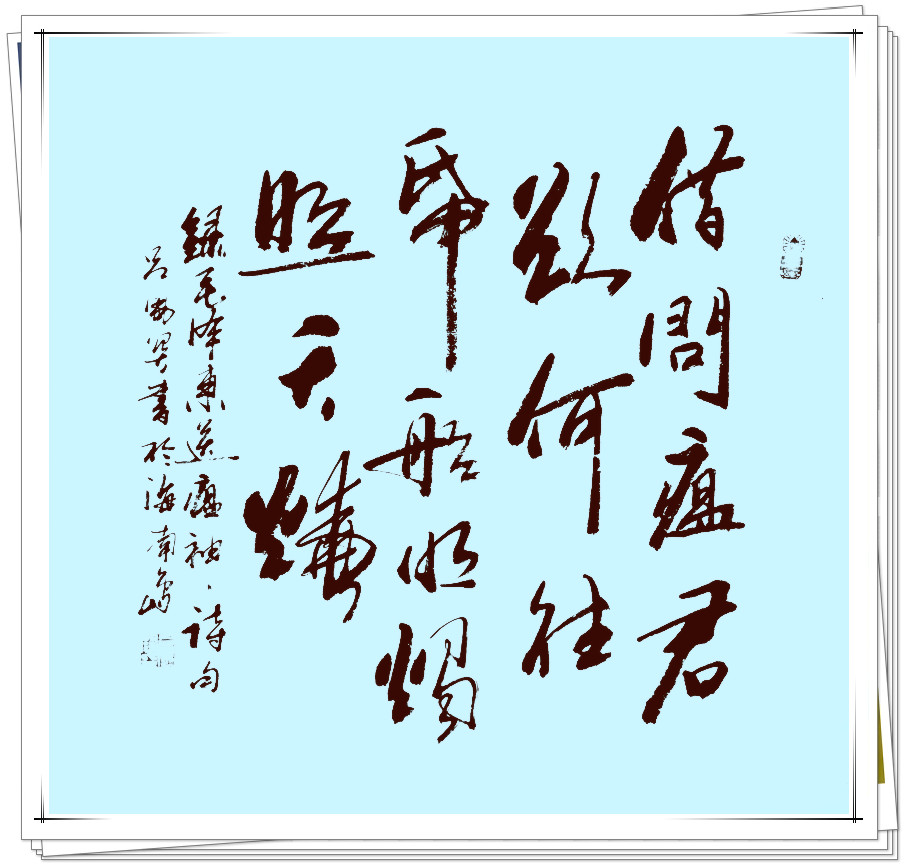 借問瘟君
欲何往
帋船明燭
照天燒
錄毛澤東送瘟神詩句
吕書於海南島